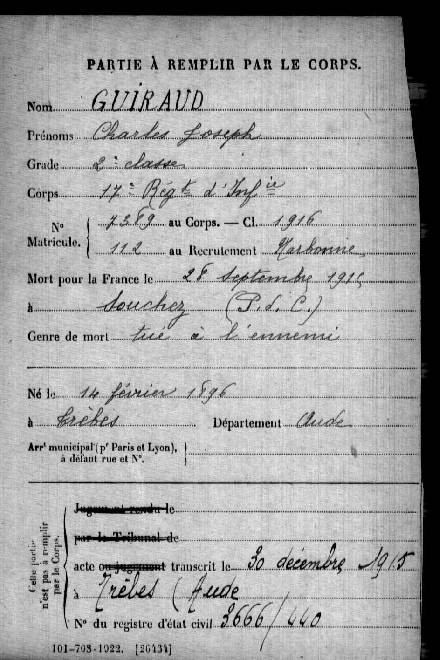 PARTIE À REMPLIR PAR LE CORPS.
Nom GUIRAUD
Prénoms Charles Joseph
Grade 2e classe
Corps 17e Régt d'Infie
N° Matricule. { 7389 au Corps. — Cl. 1916
112 au Recrutement Narbonne
Mort pour la France le 28 septembre 1915
à Souchez (P. d. C.)
Genre de mort tué à l'ennemi
Né le 14 février 1896
à Trèbes Département Aude
Arrt municipal (pr Paris et Lyon), à défaut rue et N°.
Cette partie n'est pas à remplir par le Corps.
Jugement rendu le
par le Tribunal de
acte ou jugement transcrit le 30 décembre 1915
à Trèbes (Aude
N° du registre d'état civil 3666/440
101-708-1922. [26434]